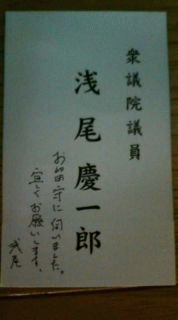 衆議院議員
浅尾慶一郎
お留守に伺いました。
宜しくお願いします。
浅尾